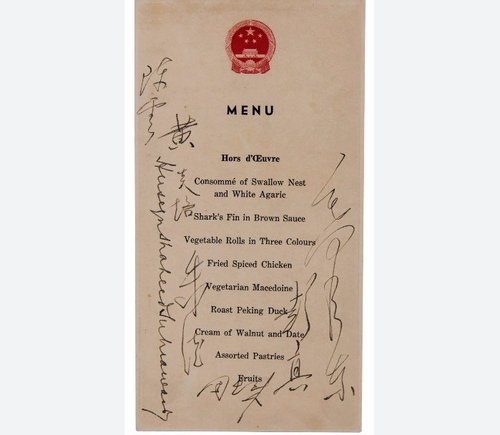 MENU
Hors d'Œuvre
Consommé of Swallow Nest
and White Agaric
Shark's Fin in Brown Sauce
Vegetable Rolls in Three Colours
Fried Spiced Chicken
Vegetarian Macedoine
Roast Peking Duck
Cream of Walnut and Date
Assorted Pastries
Fruits
Huseyn Shaheed Suhrawardy
毛泽东
彭真